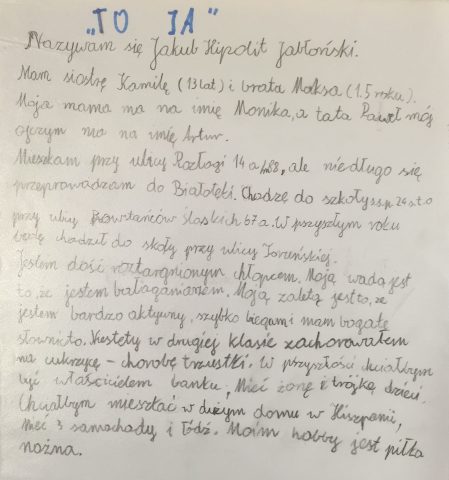 „TO JA"
Nazywam się Jakub Hipolit Jabłoński.
Mam siostrę Kamilę (13 lat) i brata Maksa (1.5 roku).
Moja mama ma na imię Monika, a tata Paweł mój
ojczym ma na imię Artur.
Mieszkam przy ulicy Rozłogi 14 a, ale niedługo się
przeprowadzam do Białołęki. Chodzę do szkoły
przy ulicy Powstańców Śląskich 67a. W przyszłym roku
będę chodził do szkoły przy ulicy Toruńskiej.
Jestem dość roztargnionym chłopcem. Moją wadą jest
to, że jestem bałaganiarzem. Moją zaletą jest to, że
jestem bardzo aktywny, szybko biegam i mam bogate
słownictwo. Niestety w drugiej klasie zachorowałem
na cukrzycę – chorobę trzustki. W przyszłości chciałbym
być właścicielem banku, Mieć żonę i trójkę dzieci.
Chciałbym mieszkać w dużym domu w Hiszpanii,
mieć 3 samochody i łódź. Moim hobby jest piłka
nożna.